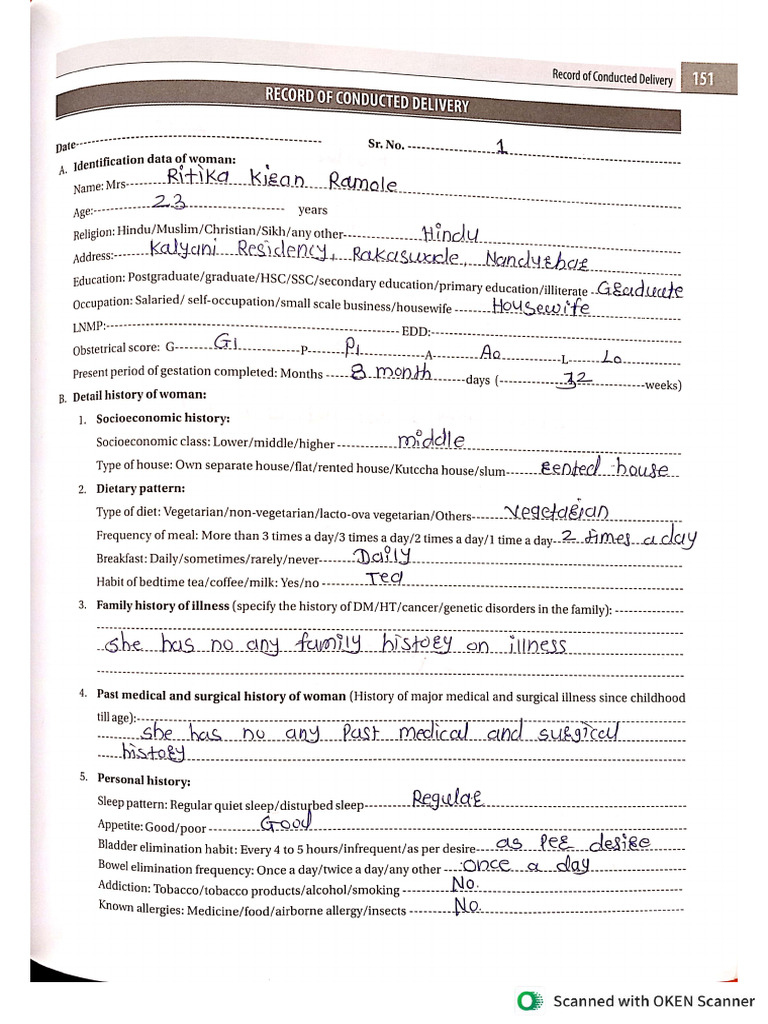 Record of Conducted Delivery 151
RECORD OF CONDUCTED DELIVERY
Date Sr. No. 1
A. Identification data of woman:
Name: Mrs Ritika Kiran Ramole
Age: 23 years
Religion: Hindu/Muslim/Christian/Sikh/any other Hindu
Address: Kalyani Residency, Nandurbar
Education: Postgraduate/graduate/HSC/SSC/secondary education/primary education/illiterate Graduate
Occupation: Salaried/ self-occupation/small scale business/housewife Housewife
LNMP: EDD:
Obstetrical score: G G1 P P1 A A0 L L0
Present period of gestation completed: Months 8 month days ( 32 weeks)
B. Detail history of woman:
1. Socioeconomic history:
Socioeconomic class: Lower/middle/higher middle
Type of house: Own separate house/flat/rented house/Kutccha house/slum rented house
2. Dietary pattern:
Type of diet: Vegetarian/non-vegetarian/lacto-ova vegetarian/Others Vegetarian
Frequency of meal: More than 3 times a day/3 times a day/2 times a day/1 time a day 2 times a day
Breakfast: Daily/sometimes/rarely/never Daily
Habit of bedtime tea/coffee/milk: Yes/no Tea
3. Family history of illness (specify the history of DM/HT/cancer/genetic disorders in the family):
she has no any family history on illness
4. Past medical and surgical history of woman (History of major medical and surgical illness since childhood
till age):
she has no any Past medical and surgical
history
5. Personal history:
Sleep pattern: Regular quiet sleep/disturbed sleep Regular
Appetite: Good/poor Good
Bladder elimination habit: Every 4 to 5 hours/infrequent/as per desire as per desire
Bowel elimination frequency: Once a day/twice a day/any other once a day
Addiction: Tobacco/tobacco products/alcohol/smoking No.
Known allergies: Medicine/food/airborne allergy/insects No.
Scanned with OKEN Scanner